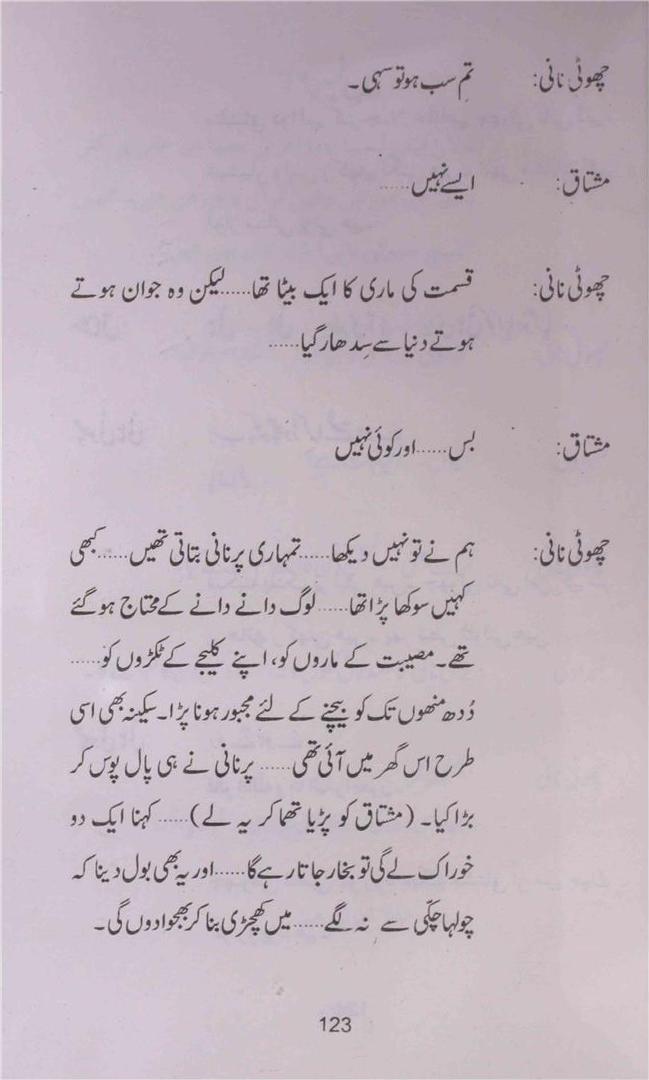 چھوٹی نانی: تم سب ہو تو سہی۔
مشتاق: ایسے نہیں......
چھوٹی نانی: قسمت کی ماری کا ایک بیٹا تھا......لیکن وہ جوان ہوتے
ہوتے دنیا سے سِدھار گیا......
مشتاق: بس......اور کوئی نہیں
چھوٹی نانی: ہم نے تو نہیں دیکھا......تمہاری پرنانی بتاتی تھیں......کبھی
کہیں سوکھا پڑا تھا......لوگ دانے دانے کے محتاج ہو گئے
تھے۔ مصیبت کے ماروں کو، اپنے کلیجے کے ٹکڑوں کو......
دُدھ منھوں تک کو بیچنے کے لئے مجبور ہونا پڑا۔ سکینہ بھی اسی
طرح اس گھر میں آئی تھی...... پرنانی نے ہی پال پوس کر
بڑا کیا۔ (مشتاق کو پڑیا تھما کر یہ لے)...... کہنا ایک دو
خوراک لے گی تو بخار جاتا رہے گا......اور یہ بھی بول دینا کہ
چولہا چکّی سے نہ لگے......میں کھچڑی بنا کر بھجوا دوں گی۔
123